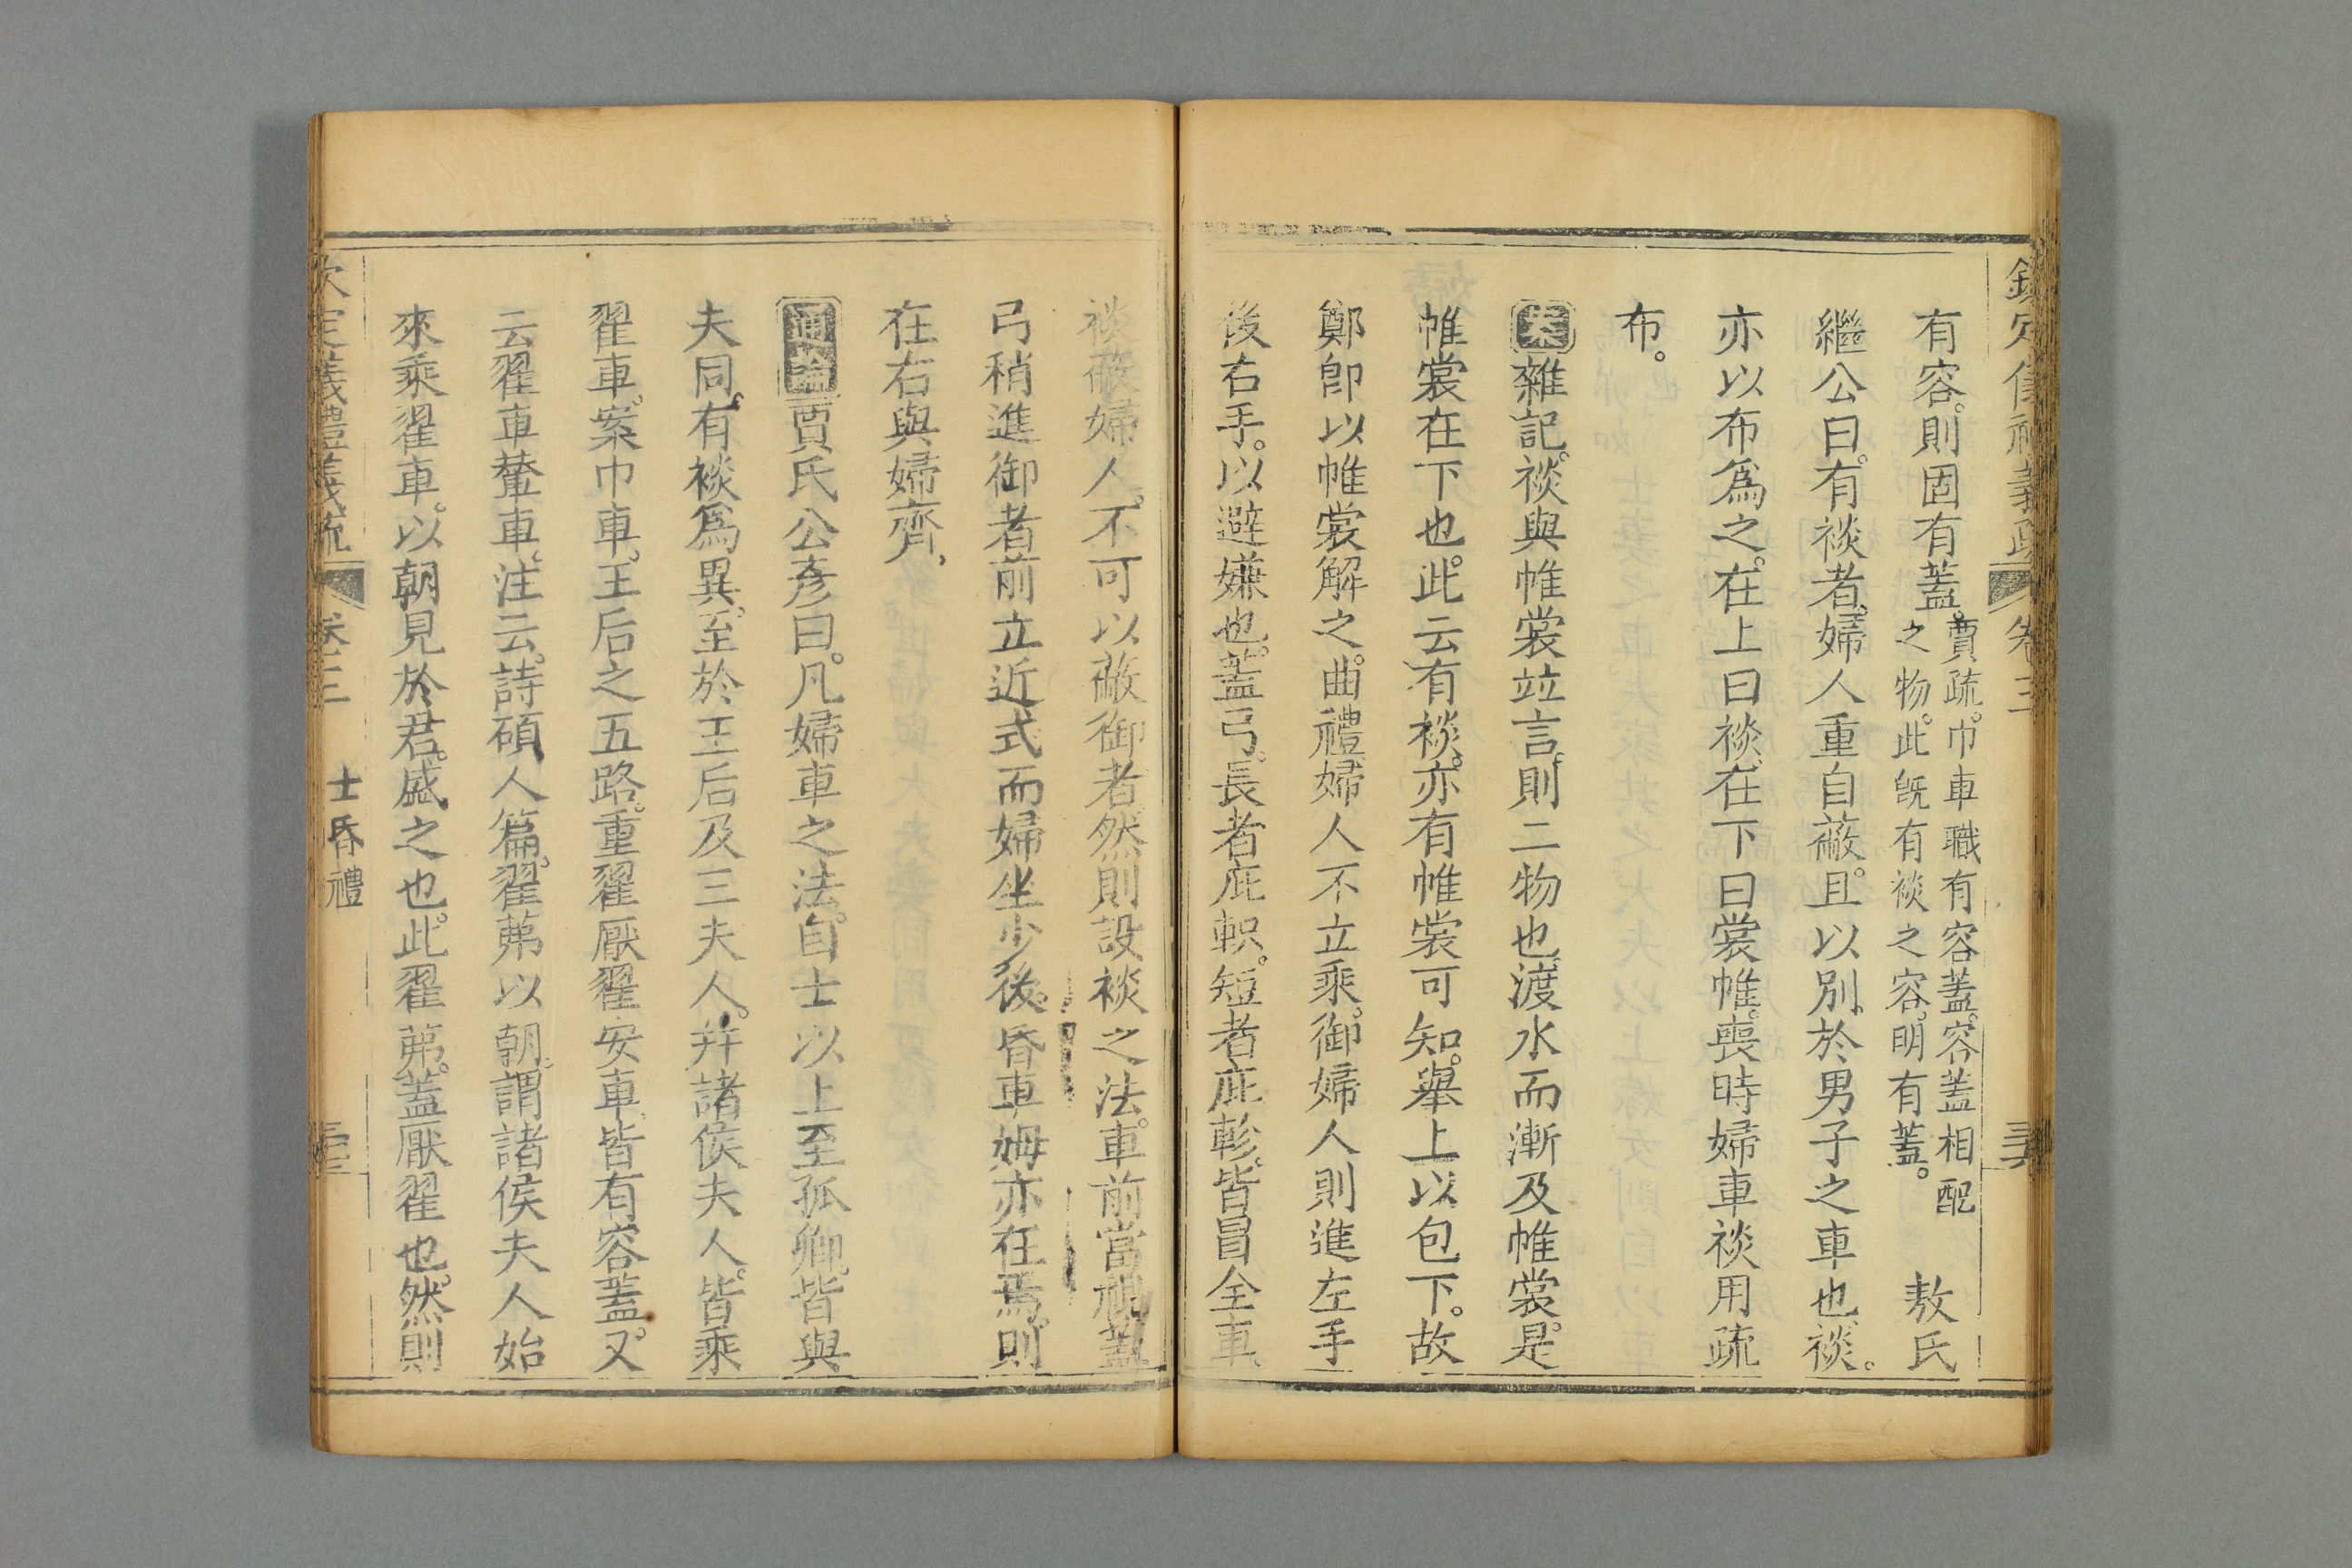 欽定儀禮義疏 卷三
有容則固有蓋。賈疏。巾車職有容蓋。容蓋相配之物。此旣有裧之容。明有蓋。 敖氏
繼公曰。有裧者。婦人重自蔽。且以別於男子之車也。裧。
亦以布爲之。在上曰裧。在下曰裳帷。喪時婦車裧用疏
布。
案雜記。裧與帷裳竝言。則二物也。渡水而漸及帷裳。是
帷裳在下也。此云有裧。亦有帷裳可知。舉上以包下。故
鄭卽以帷裳解之。曲禮。婦人不立乘。御婦人則進左手
後右手。以避嫌也。蓋弓。長者庇軹。短者庇軫。皆冒全車。
裧蔽婦人。不可以蔽御者。然則設裧之法。車前當視蓋
弓稍進。御者前立近式。而婦坐少後。昏車姆亦在焉。則
在右與婦齊。
通論賈氏公彥曰。凡婦車之法。自士以上至孤卿。皆與
夫同。有裧爲異。至於王后及三夫人。幷諸侯夫人。皆乘
翟車。案巾車。王后之五路。重翟厭翟安車。皆有容蓋。又
云翟車輦車。注云。詩碩人篇。翟茀以朝。謂諸侯夫人始
來乘翟車。以朝見於君。盛之也。此翟茀。蓋厭翟也。然則
欽定儀禮義疏 卷三 士昏禮